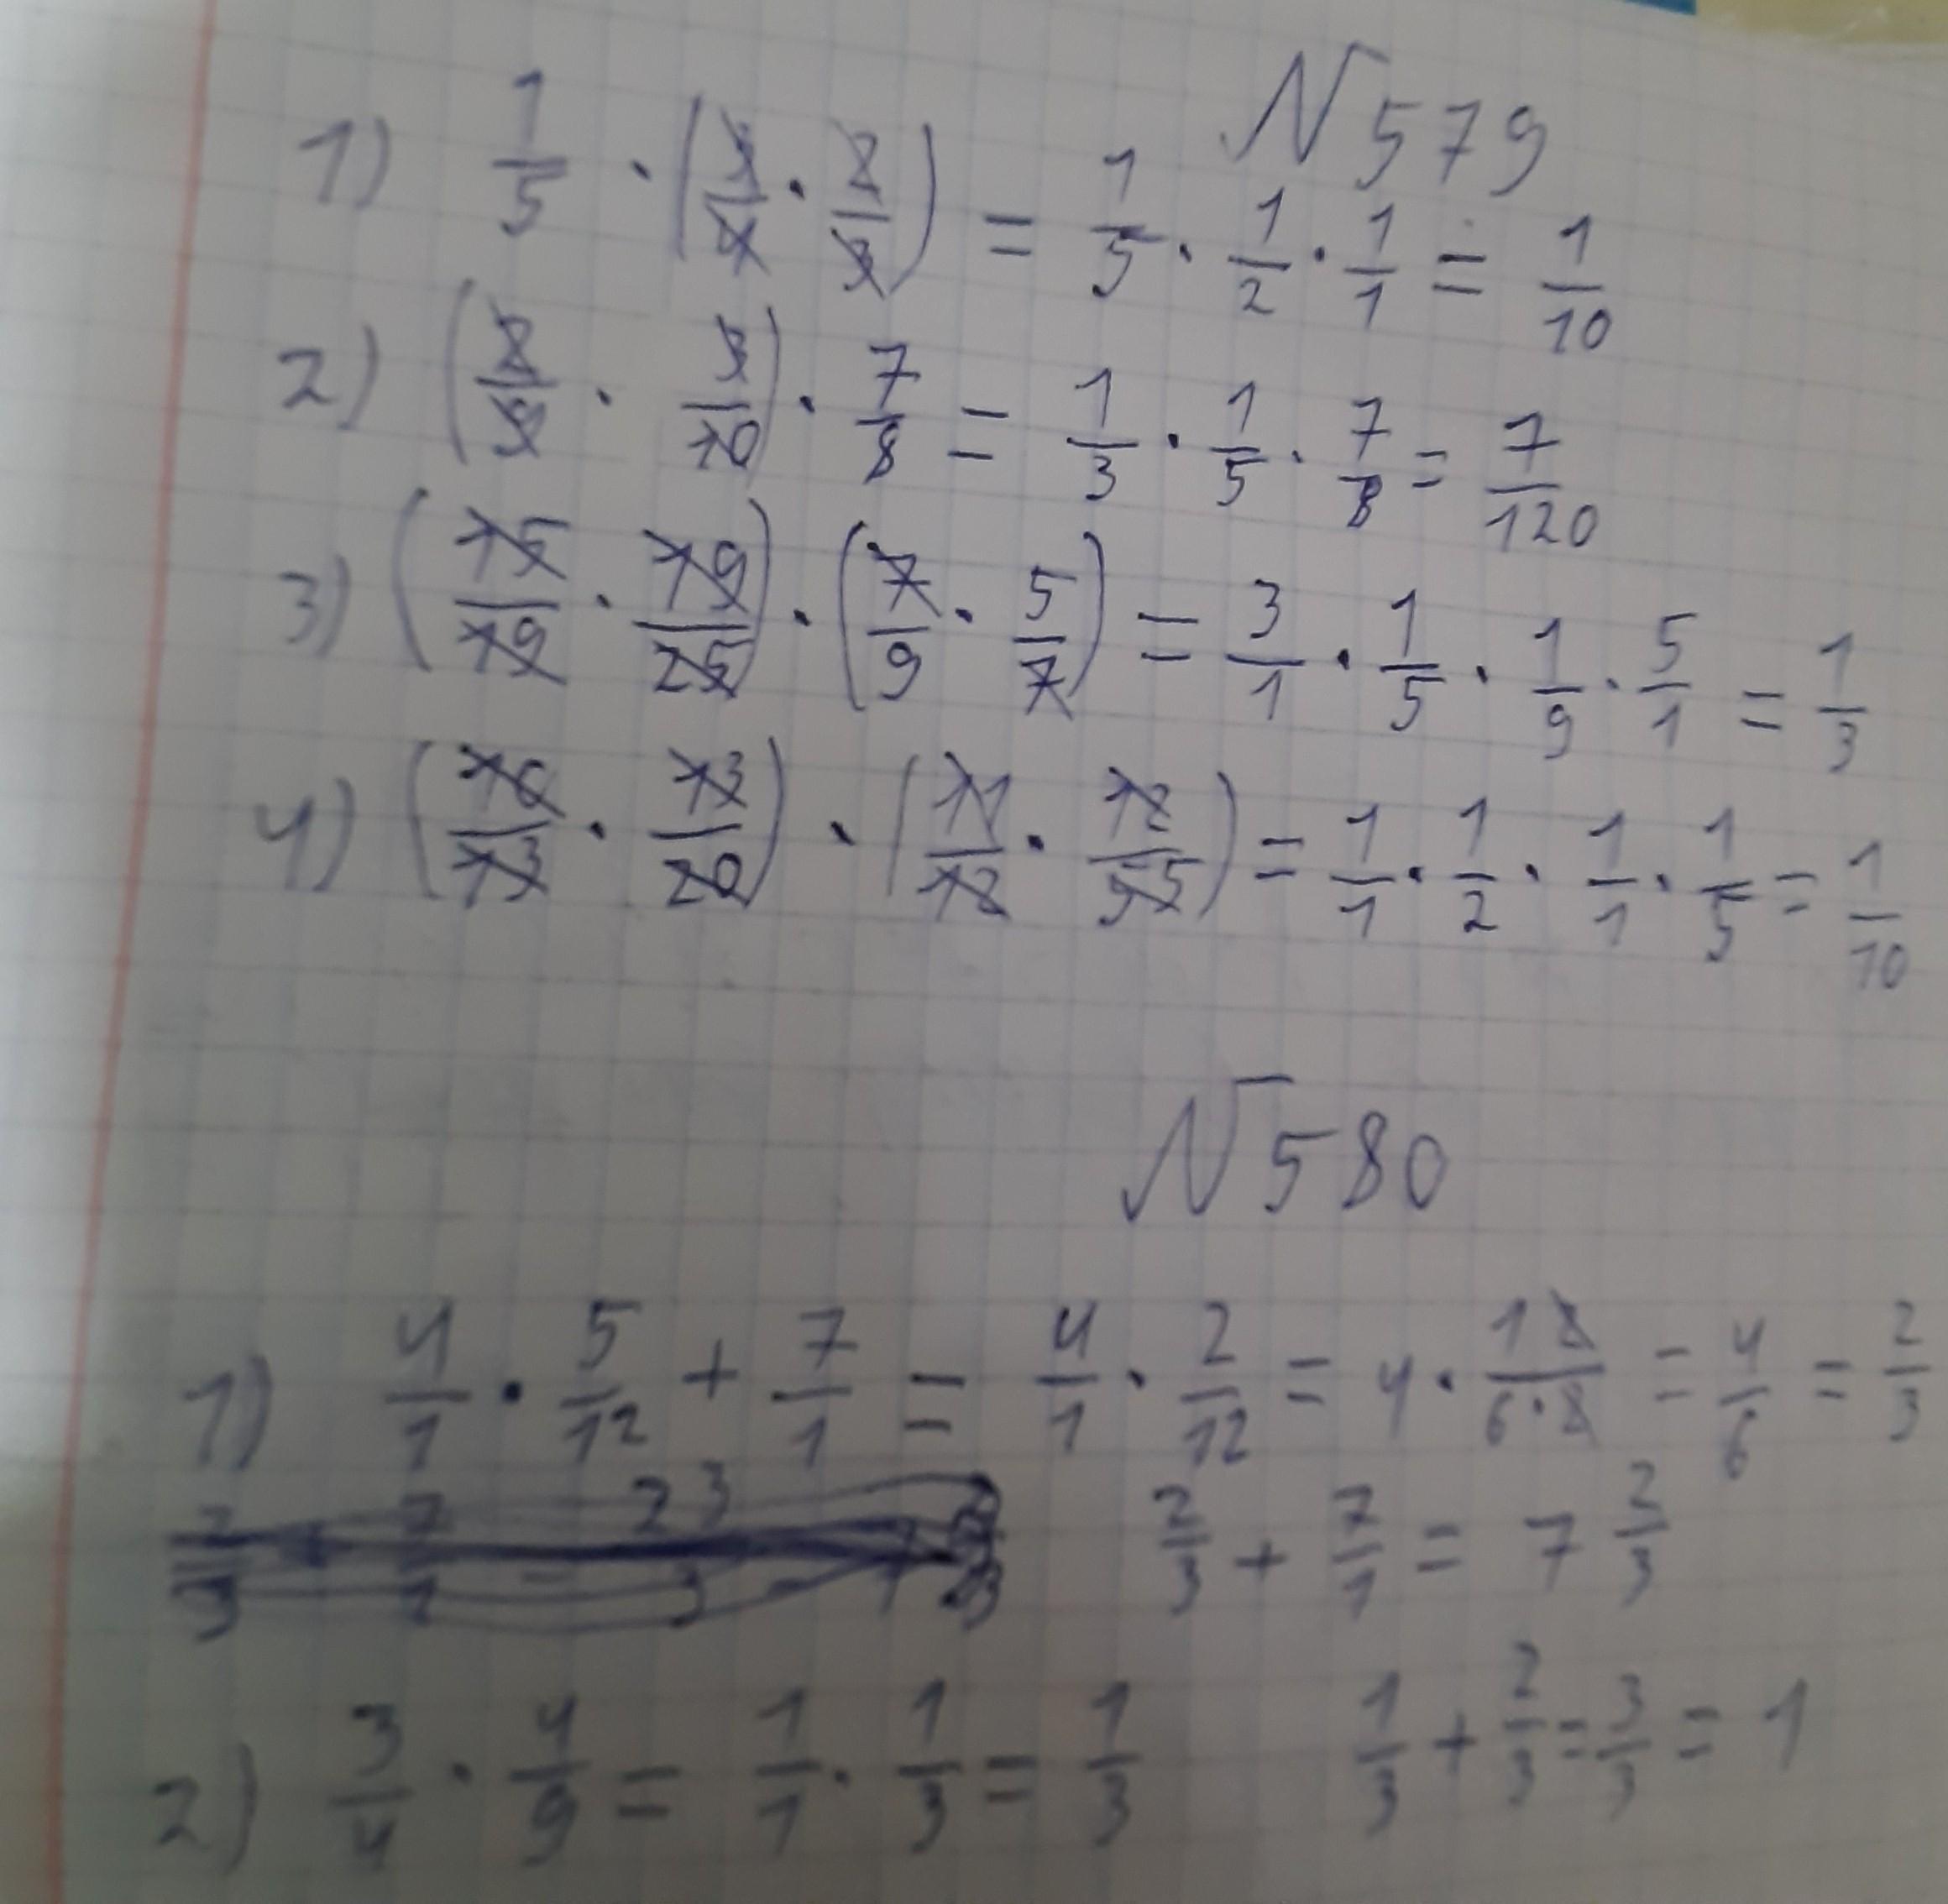 N 579
1) 1/5 · (3/4 · 2/3) = 1/5 · 1/2 · 1/1 = 1/10
2) (2/9 · 3/10) · 7/8 = 1/3 · 1/5 · 7/8 = 7/120
3) (15/19 · 19/25) · (7/9 · 5/7) = 3/1 · 1/5 · 1/9 · 5/1 = 1/3
4) (10/13 · 13/20) · (11/12 · 12/55) = 1/1 · 1/2 · 1/1 · 1/5 = 1/10
N 580
1) 4/1 · 5/12 + 7/1 = 4/1 · 2/12 = 4 · 12/6·2 = 4/6 = 2/3
2/3 + 7/1 = 7 2/3
2) 3/4 · 4/9 = 1/1 · 1/3 = 1/3 1/3 + 2/3 = 3/3 = 1